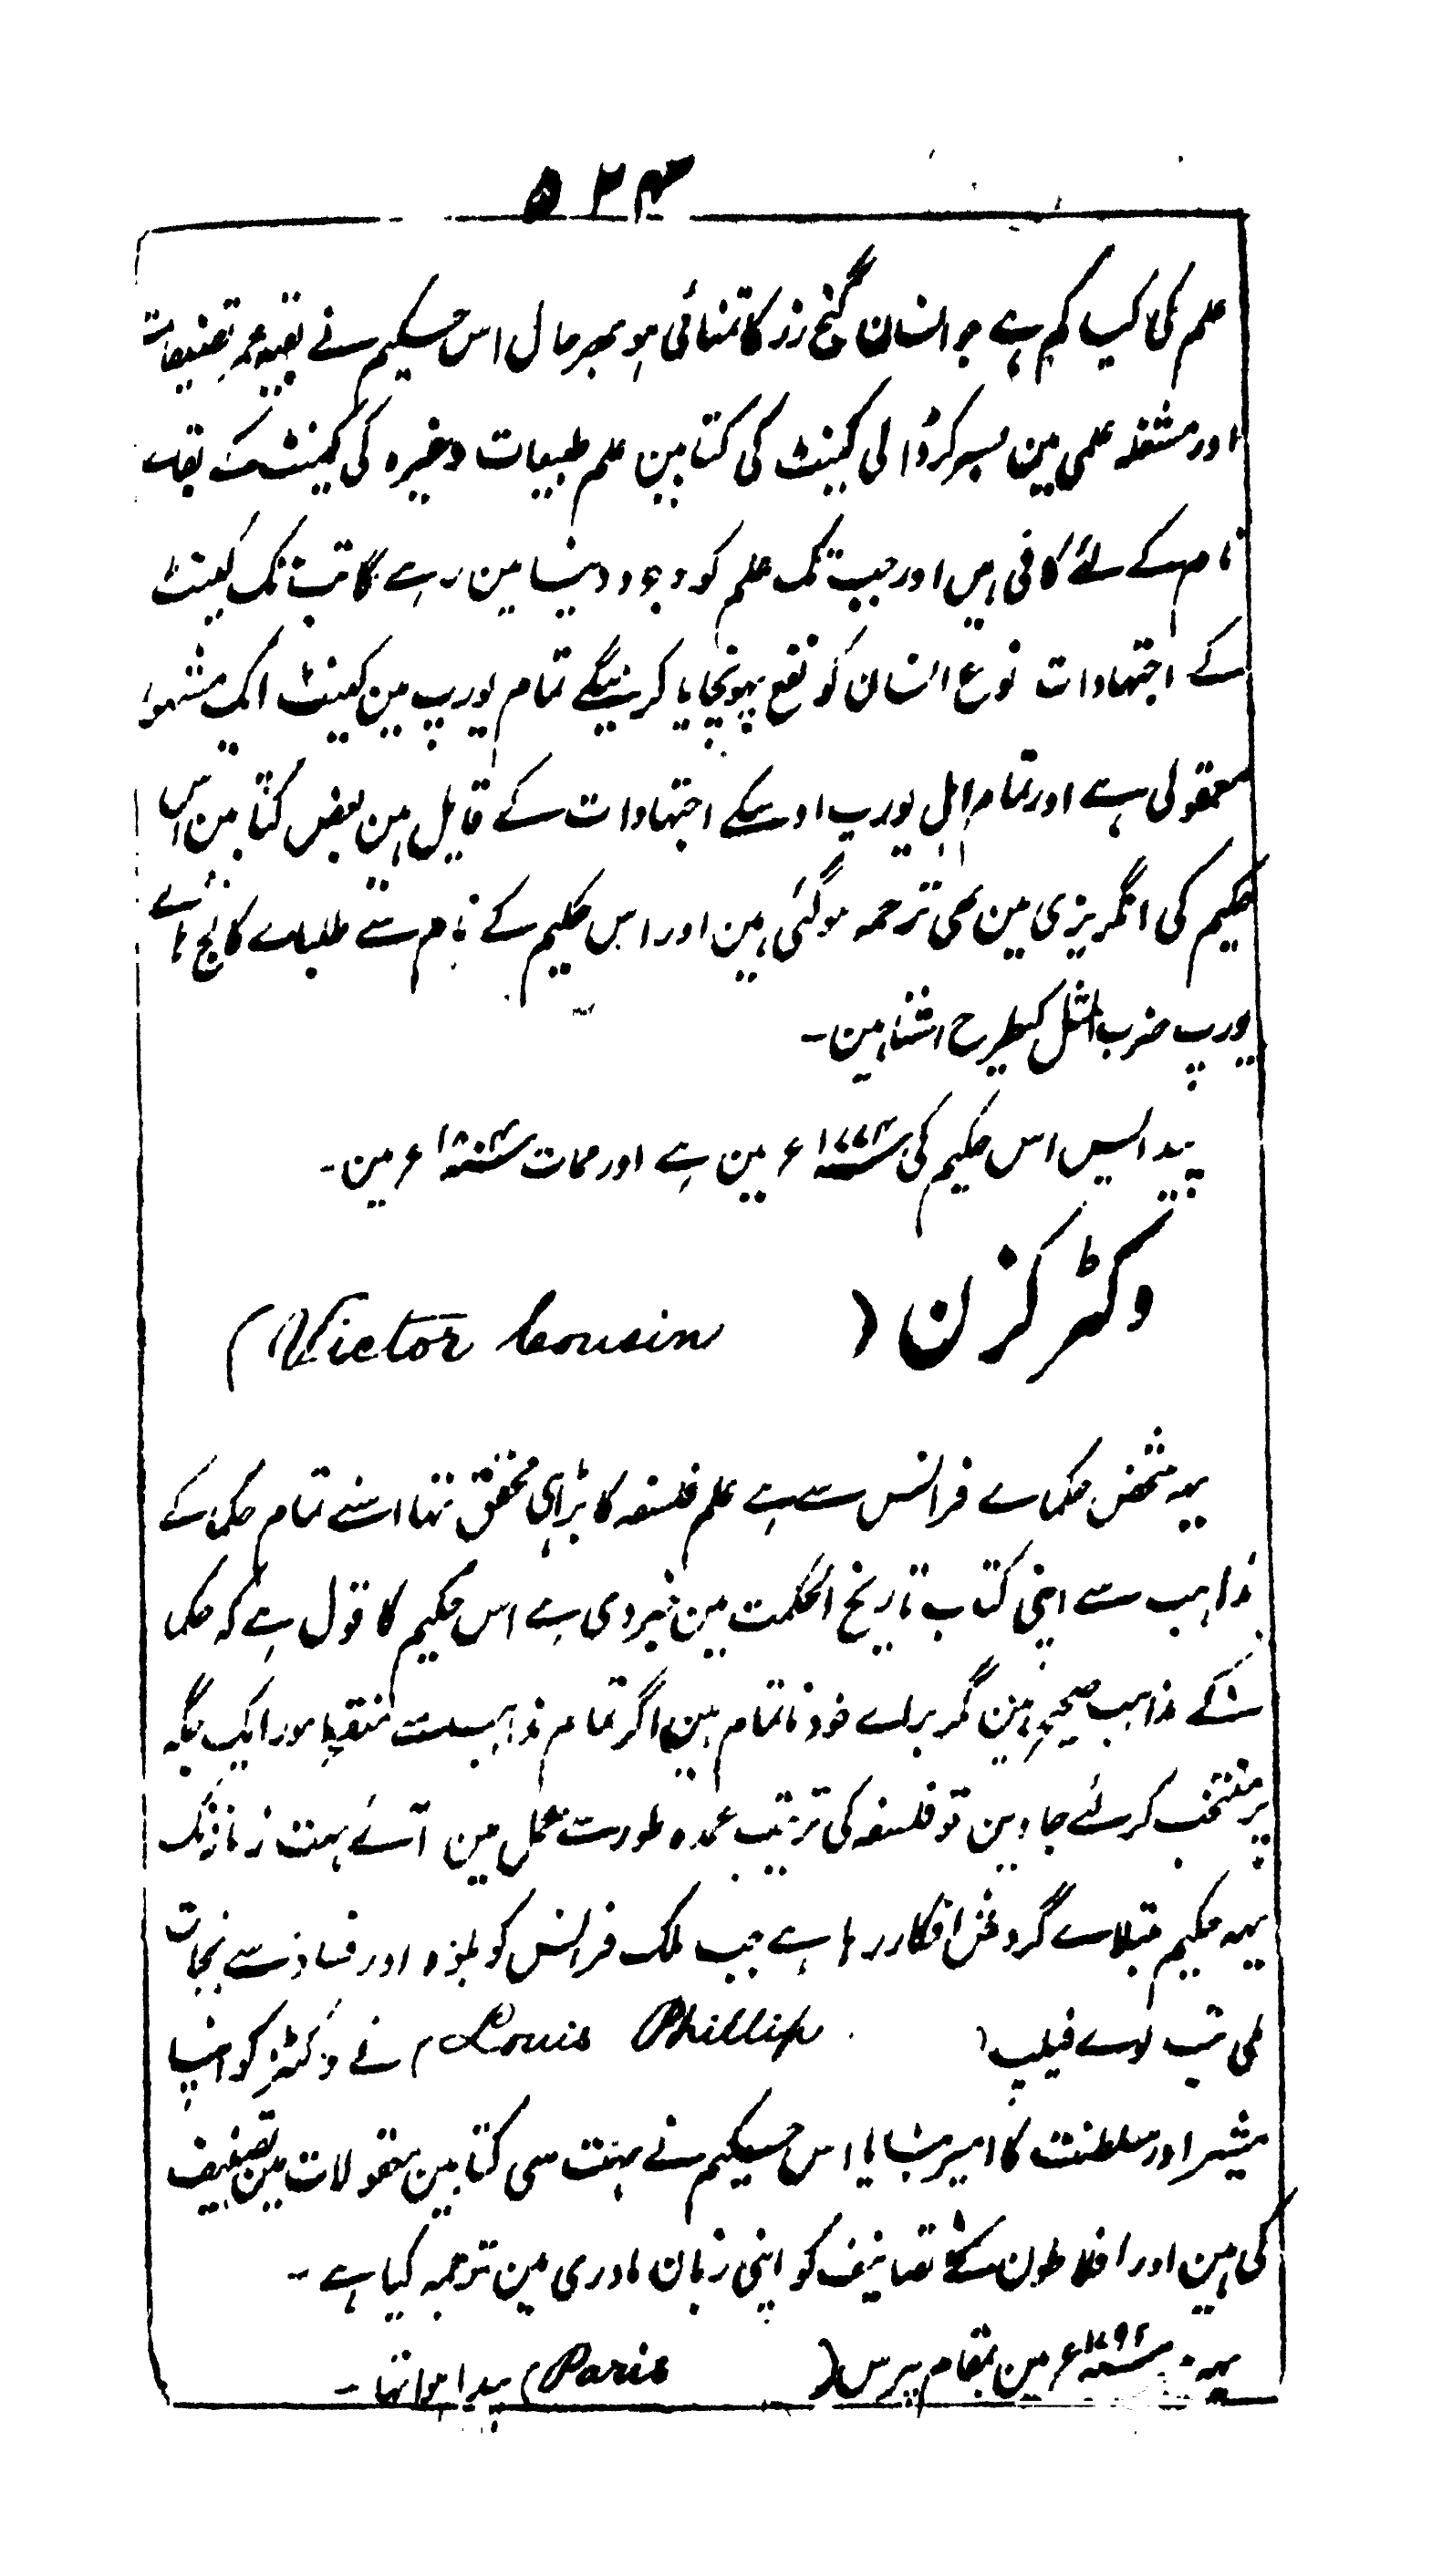 ۵۲۴
علم کی کیا کم ہے جو انسان گنج زر کا تمنائی ہو بہرحال اس حکیم نے بقیہ عمر تصنیفات
اور مشغلہ علمی مین بسر کر ڈالی کینٹ کی کتابین علم طبیعات وغیرہ کی کینٹ کے بقاے
نام کے لئے کافی ہیں اور جب تک علم کو وجود دنیا مین رہے گا تب تک کینٹ
کے اجتہادات نوع انسان کو نفع پہونچایا کرینگے تمام یورپ مین کینٹ ایک مشہور
معقولی ہے اور تمام اہل یورپ اوسکے اجتہادات کے قایل ہین بعض کتابین اس
حکیم کی انگریزی مین بھی ترجمہ ہوگئی ہین اور اس حکیم کے نام سے طلباے کالج ہاے
یورپ ضرب المثل کیطرح اشنا ہین۔
پیدایس اس حکیم کی ۱۷۲۴ء مین ہے اور ممات ۱۸۰۴ء مین۔
وکٹر کزن (Victor Cousin)
یہہ شخص حکماے فرانس سے ہے علم فلسفہ کا بڑا ہی محقق تھا اسنے تمام حکما کے
مذاہب سے اپنی کتاب تاریخ الحکمت مین خبر دی ہے اس حکیم کا قول ہے کہ حکما
کے مذاہب صحیح ہین مگر براے خود ناتمام ہین اگر تمام مذاہب سے منقح امور ایک جگہ
پر منتخب کر لئے جاوین تو فلسفہ کی ترتیب عمدہ طور سے عمل مین آے بہت زمانہ تک
یہہ حکیم مبتلاے گردش افکار رہا ہے جب ملک فرانس کو بلوہ اور فساد سے نجات
ملی تب لوے فیلپ (Louis Phillip) نے وکٹر کو اپنا
مشیر اور سلطنت کا امیر بنایا اس حکیم نے بہت سی کتابین معقولات مین تصنیف
کی ہین اور افلاطون کے تصانیف کو اپنی زبان مادری مین ترجمہ کیا ہے۔
یہہ ۱۷۹۲ء مین بمقام پیرس (Paris) پیدا ہوا تھا۔